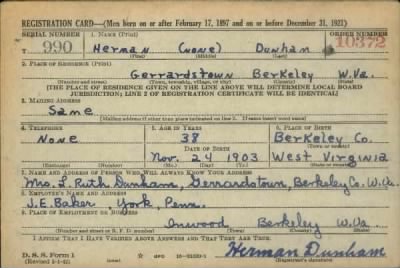 REGISTRATION CARD—(Men born on or after February 17, 1897 and on or before December 31, 1921)
SERIAL NUMBER 1. NAME (Print) ORDER NUMBER
990 Herman (none) Dunham 10372
(First) (Middle) (Last)
2. PLACE OF RESIDENCE (Print)
Gerrardstown Berkeley W.Va.
(Number and street) (Town, township, village, or city) (County) (State)
[THE PLACE OF RESIDENCE GIVEN ON THE LINE ABOVE WILL DETERMINE LOCAL BOARD
JURISDICTION; LINE 2 OF REGISTRATION CERTIFICATE WILL BE IDENTICAL]
3. MAILING ADDRESS
Same
[Mailing address if other than place indicated on line 2. If same insert word same]
4. TELEPHONE 5. AGE IN YEARS 6. PLACE OF BIRTH
None 38 Berkeley Co.
DATE OF BIRTH (Town or county)
Nov. 24 1903 West Virginia
(Exchange) (Number) (Mo.) (Day) (Yr.) (State or country)
7. NAME AND ADDRESS OF PERSON WHO WILL ALWAYS KNOW YOUR ADDRESS
Mrs. L. Ruth Dunham, Gerrardstown, Berkeley Co. W.Va.
8. EMPLOYER'S NAME AND ADDRESS
J.E. Baker York, Penn.
9. PLACE OF EMPLOYMENT OR BUSINESS
Inwood Berkeley W.Va.
(Number and street or R. F. D. number) (Town) (County) (State)
I AFFIRM THAT I HAVE VERIFIED ABOVE ANSWERS AND THAT THEY ARE TRUE.
D. S. S. Form 1
(Revised 1-1-42) Herman Dunham